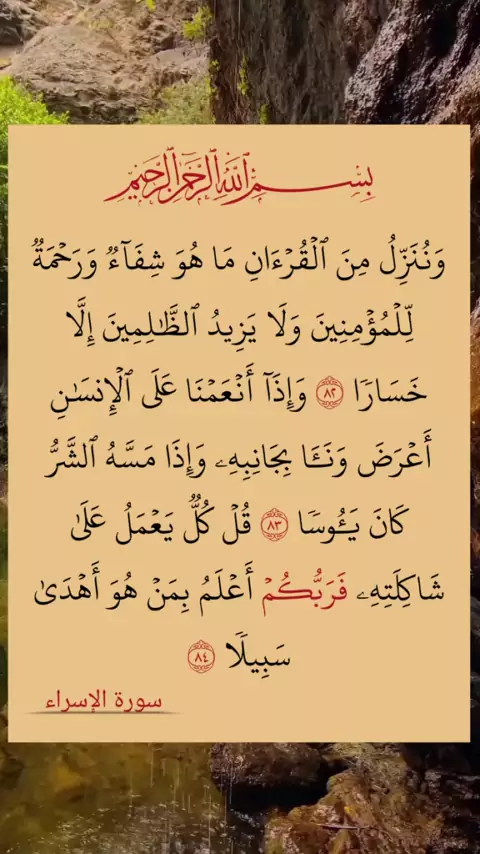 بِسْمِ ٱللَّهِ ٱلرَّحْمَٰنِ ٱلرَّحِيمِ
وَنُنَزِّلُ مِنَ ٱلْقُرْءَانِ مَا هُوَ شِفَآءٌ وَرَحْمَةٌ
لِّلْمُؤْمِنِينَ وَلَا يَزِيدُ ٱلظَّٰلِمِينَ إِلَّا
خَسَارًا ٨٢ وَإِذَآ أَنْعَمْنَا عَلَى ٱلْإِنسَٰنِ
أَعْرَضَ وَنَـَٔا بِجَانِبِهِۦ وَإِذَا مَسَّهُ ٱلشَّرُّ
كَانَ يَـُٔوسًا ٨٣ قُلْ كُلٌّ يَعْمَلُ عَلَىٰ
شَاكِلَتِهِۦ فَرَبُّكُمْ أَعْلَمُ بِمَنْ هُوَ أَهْدَىٰ
سَبِيلًا ٨٤
سورة الإسراء